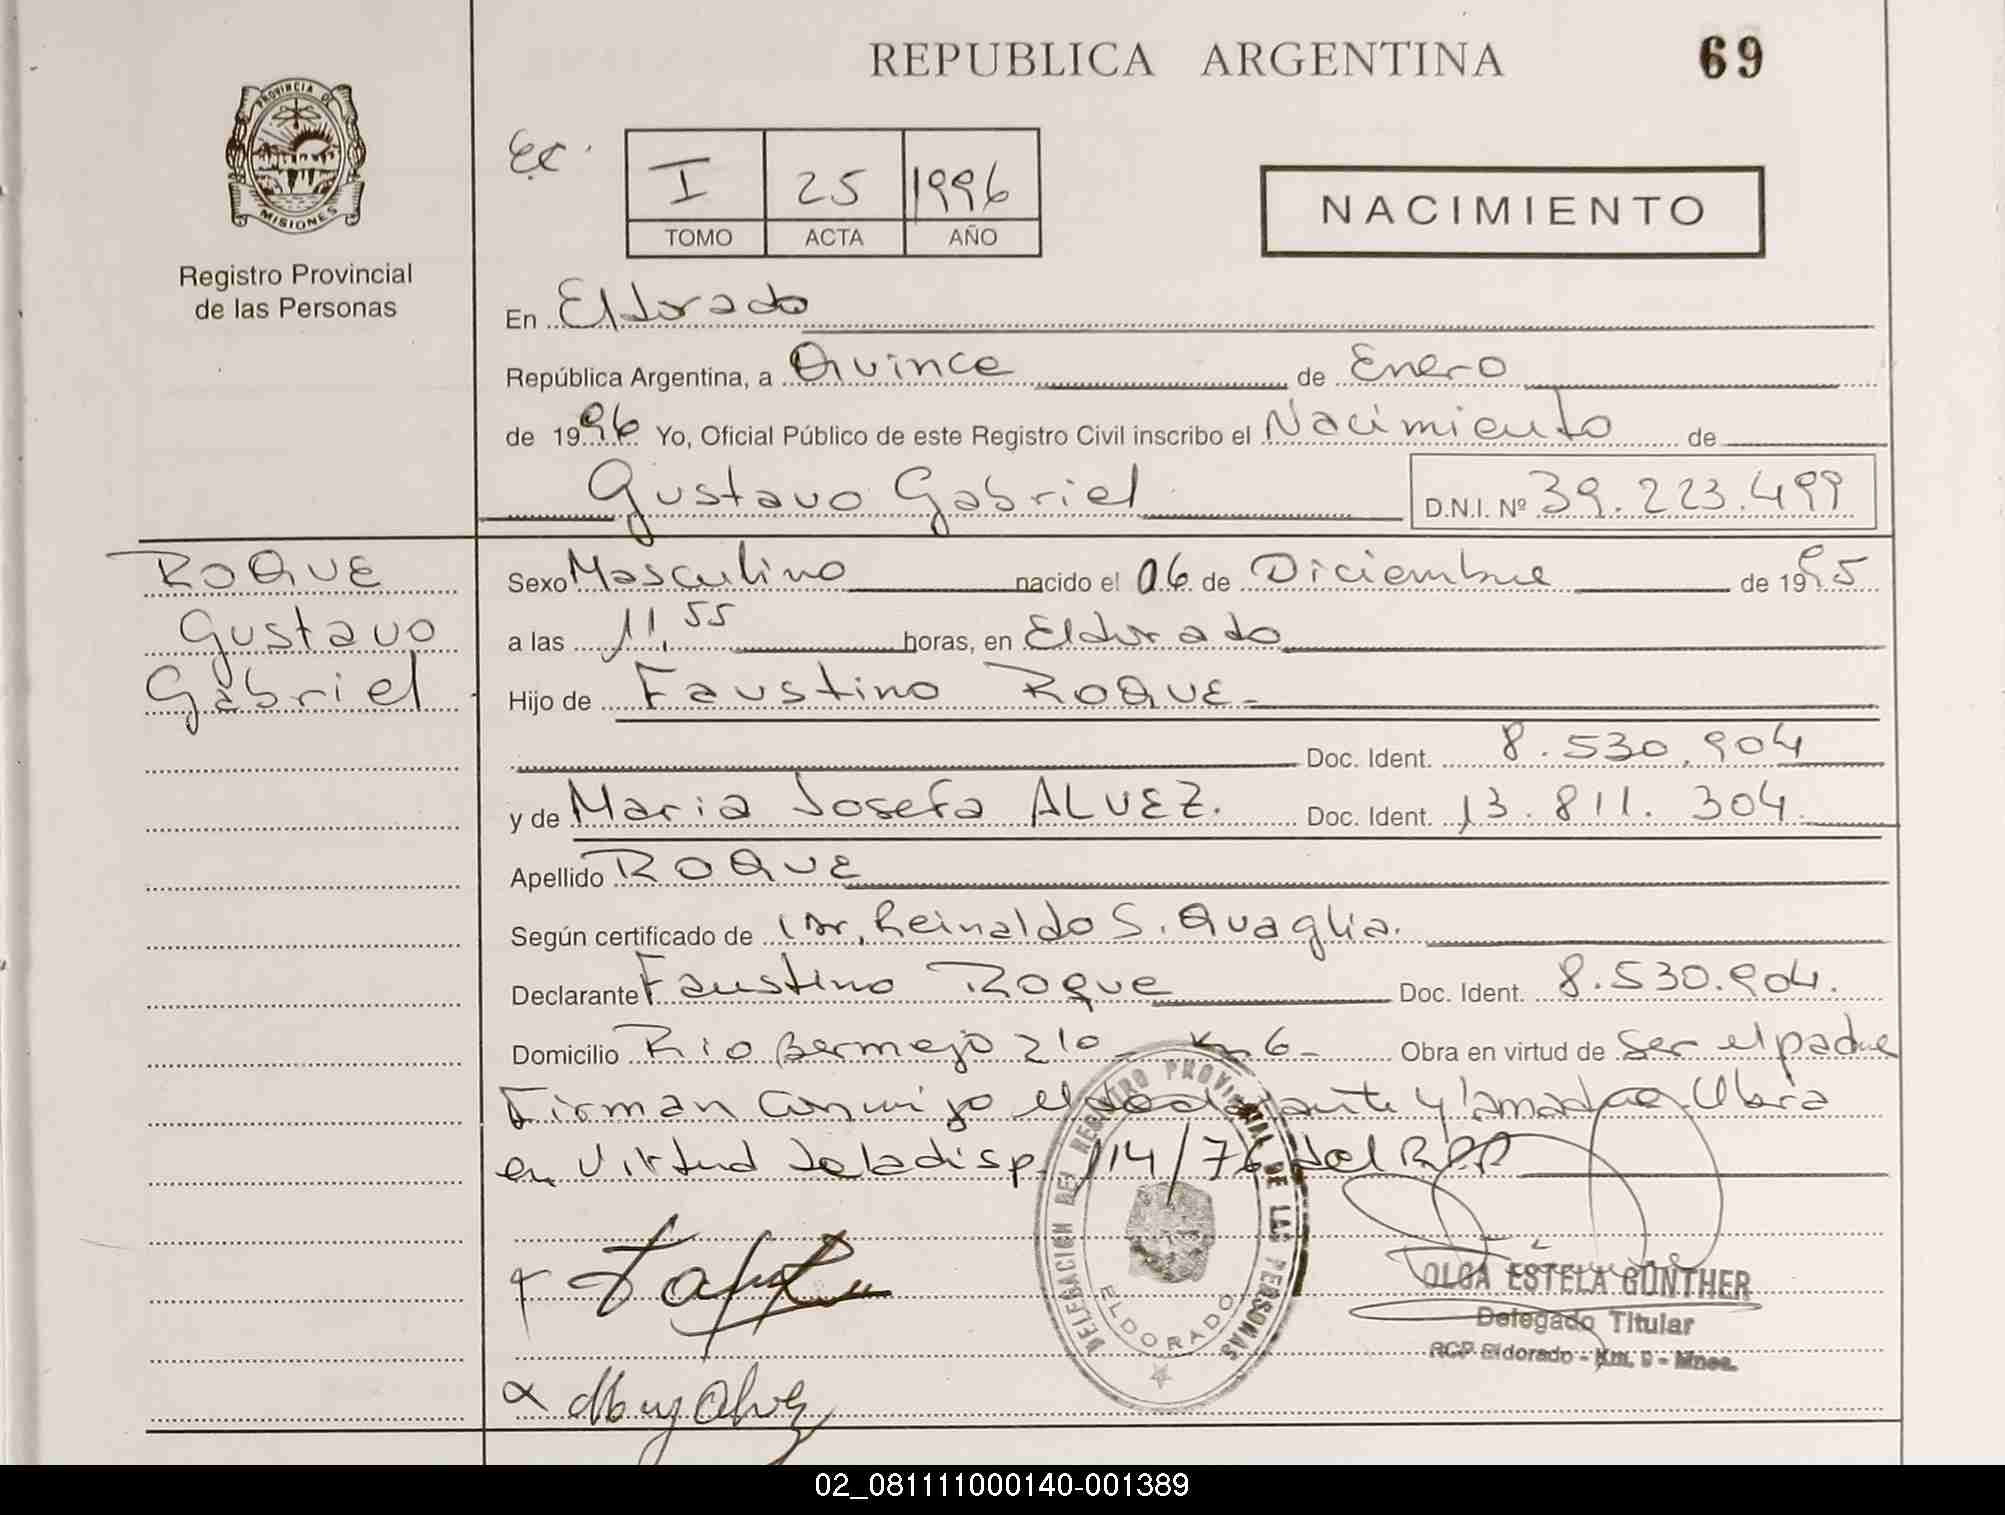 REPUBLICA ARGENTINA
69
PROVINCIA DE
MISIONES
Registro Provincial
de las Personas
I 25 1996
TOMO ACTA AÑO
NACIMIENTO
En Eldorado
República Argentina, a Quince de Enero
de 1996 Yo, Oficial Público de este Registro Civil inscribo el Nacimiento de
Gustavo Gabriel D.N.I. Nº 39.223.499
ROQUE
Gustavo
Gabriel
Sexo Masculino nacido el 06 de Diciembre de 1995
a las 11,55 horas, en Eldorado
Hijo de Faustino ROQUE
Doc. Ident. 8.530.904
y de Maria Josefa ALVEZ. Doc. Ident. 13.811.304
Apellido ROQUE
Según certificado de Dr. Reinaldo S. Quaglia.
Declarante Faustino Roque Doc. Ident. 8.530.904.
Domicilio Rio Bermejo 210 Km 6 Obra en virtud de Ser el padre
Firman conmigo el declarante y la madre Obra
en virtud de la disp. 114/76 del RPP
DELEGACION DEL REGISTRO PROVINCIAL DE LAS PERSONAS
ELDORADO
OLGA ESTELA GUNTHER
Delegado Titular
RCP Eldorado - Km. 9 - Mnes.
02_081111000140-001389